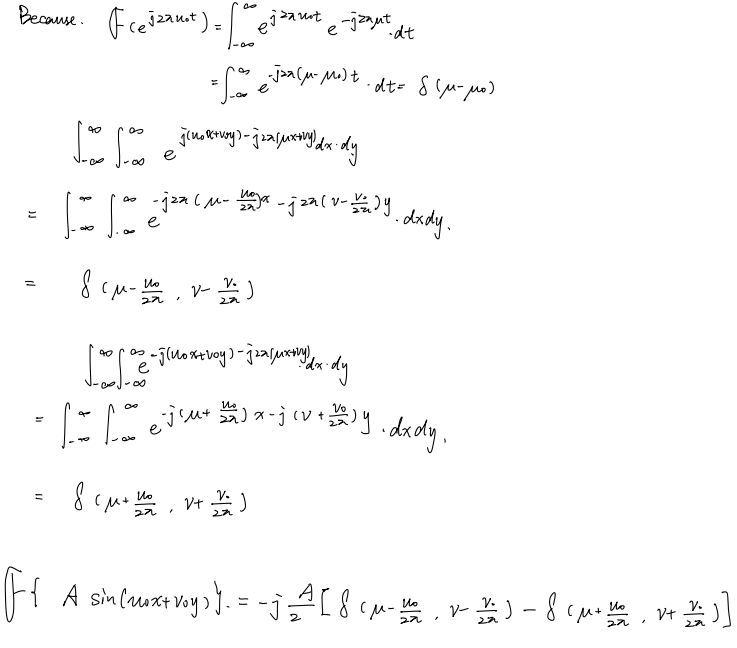 Because. F(e^{j2πu₀t}) = ∫_{-∞}^{∞} e^{j2πu₀t} e^{-j2πμt}·dt
= ∫_{-∞}^{∞} e^{-j2π(μ-μ₀)t}·dt = δ(μ-μ₀)
∫_{-∞}^{∞} ∫_{-∞}^{∞} e^{j(u₀x+v₀y)-j2π(μx+νy)} dx·dy
= ∫_{-∞}^{∞} ∫_{-∞}^{∞} e^{-j2π(μ-\frac{u₀}{2π})x-j2π(ν-\frac{v₀}{2π})y}·dxdy.
= δ(μ-\frac{u₀}{2π}, ν-\frac{v₀}{2π})
∫_{-∞}^{∞} ∫_{-∞}^{∞} e^{-j(u₀x+v₀y)-j2π(μx+νy)}·dx·dy
= ∫_{-∞}^{∞} ∫_{-∞}^{∞} e^{-j(μ+\frac{u₀}{2π})x-j(ν+\frac{v₀}{2π})y}·dxdy.
= δ(μ+\frac{u₀}{2π}, ν+\frac{v₀}{2π})
F{ A sin(u₀x+v₀y)}. = -j\frac{A}{2}[δ(μ-\frac{u₀}{2π}, ν-\frac{v₀}{2π}) - δ(μ+\frac{u₀}{2π}, ν+\frac{v₀}{2π})]